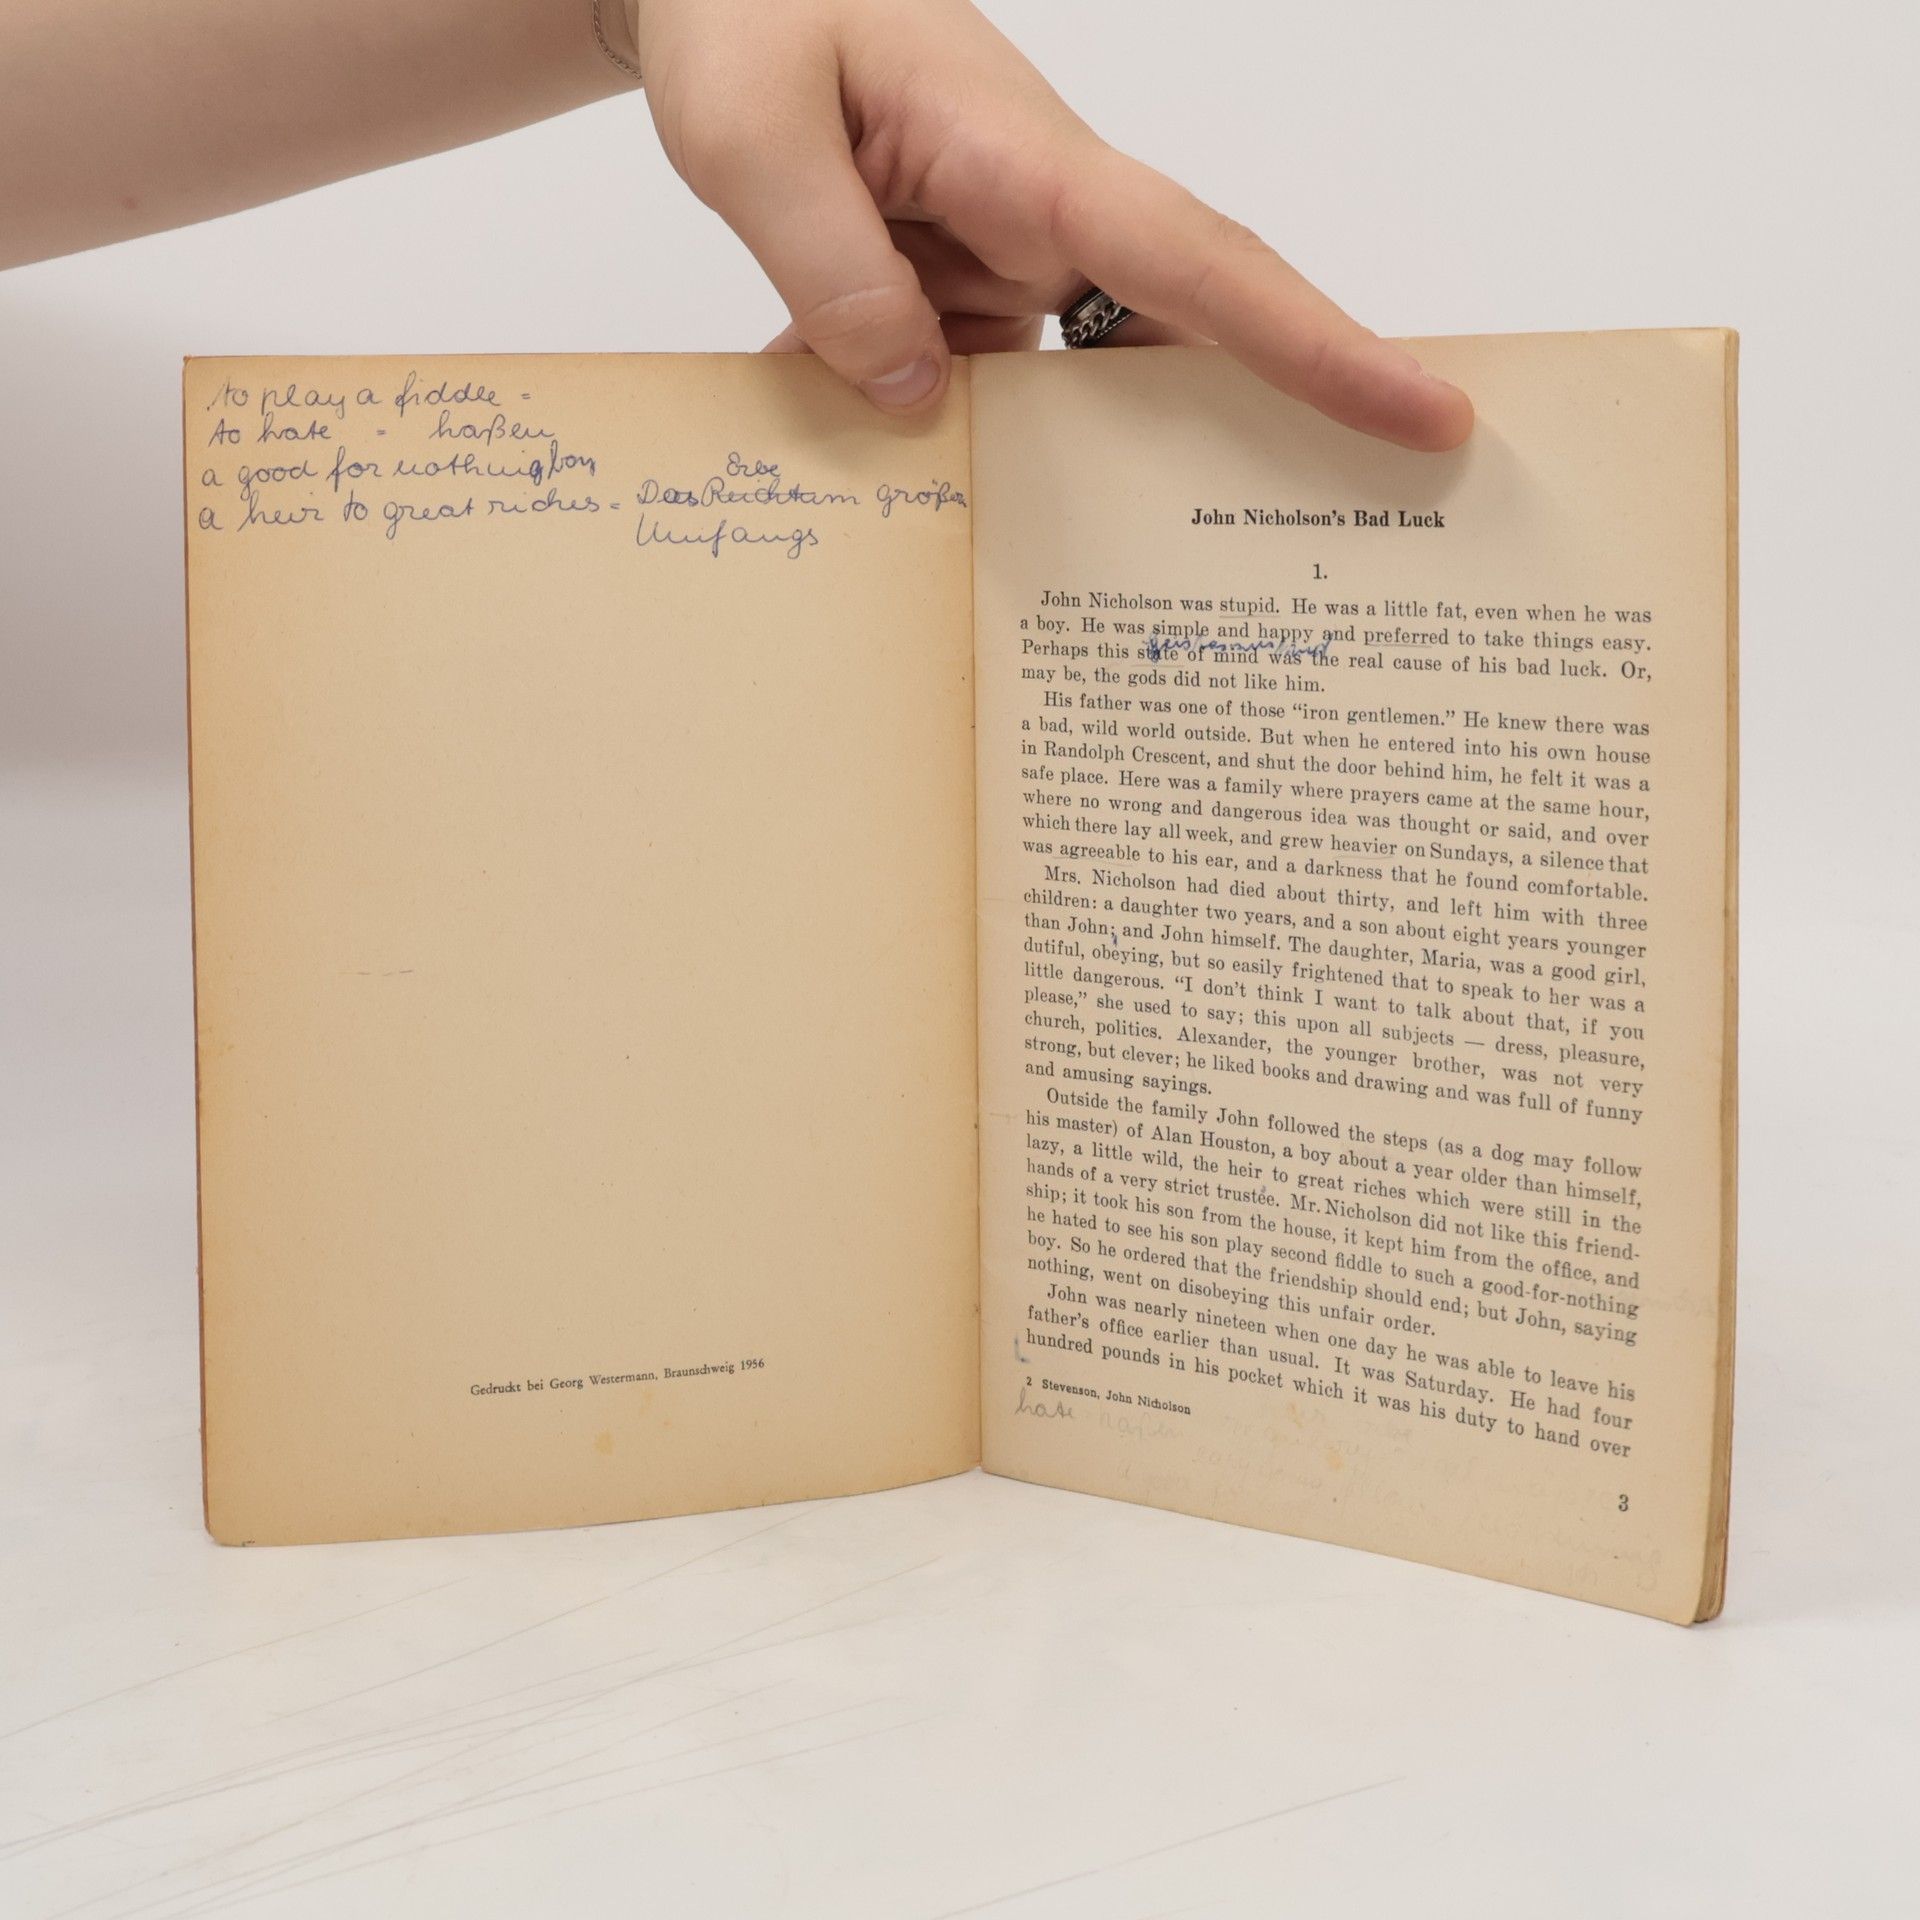 to play a fiddle =
to hate = haßen
a good for nothing boy
Erbe
a heir to great riches = Das Reichtum größen
Umfangs
Gedruckt bei Georg Westermann, Braunschweig 1956
John Nicholson's Bad Luck
1.
John Nicholson was stupid. He was a little fat, even when he was
a boy. He was simple and happy and preferred to take things easy.
Perhaps this state of mind was the real cause of his bad luck. Or,
may be, the gods did not like him.
His father was one of those “iron gentlemen.” He knew there was
a bad, wild world outside. But when he entered into his own house
in Randolph Crescent, and shut the door behind him, he felt it was a
safe place. Here was a family where prayers came at the same hour,
where no wrong and dangerous idea was thought or said, and over
which there lay all week, and grew heavier on Sundays, a silence that
was agreeable to his ear, and a darkness that he found comfortable.
Mrs. Nicholson had died about thirty, and left him with three
children: a daughter two years, and a son about eight years younger
than John; and John himself. The daughter, Maria, was a good girl,
dutiful, obeying, but so easily frightened that to speak to her was a
little dangerous. “I don't think I want to talk about that, if you
please,” she used to say; this upon all subjects — dress, pleasure,
church, politics. Alexander, the younger brother, was not very
strong, but clever; he liked books and drawing and was full of funny
and amusing sayings.
Outside the family John followed the steps (as a dog may follow
his master) of Alan Houston, a boy about a year older than himself,
lazy, a little wild, the heir to great riches which were still in the
hands of a very strict trustee. Mr. Nicholson did not like this friend-
ship; it took his son from the house, it kept him from the office, and
he hated to see his son play second fiddle to such a good-for-nothing
boy. So he ordered that the friendship should end; but John, saying
nothing, went on disobeying this unfair order.
John was nearly nineteen when one day he was able to leave his
father's office earlier than usual. It was Saturday. He had four
hundred pounds in his pocket which it was his duty to hand over
2 Stevenson, John Nicholson
hate haßen
3